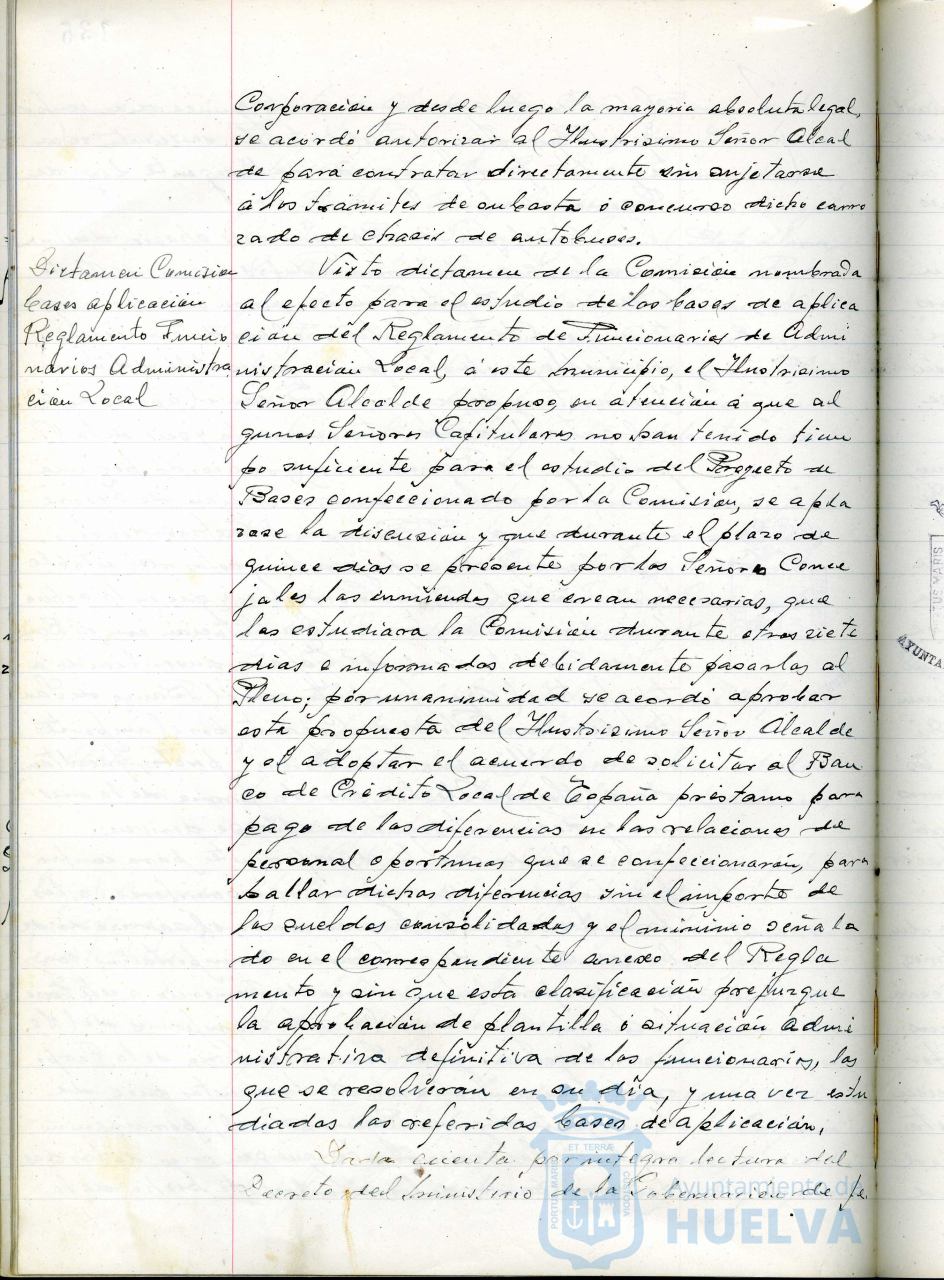 Corporación y desde luego la mayoria absoluta legal,
se acordó autorizar al Ilustrisimo Señor Alcal
de para contratar directamente sin sujetarse
á los trámites de subasta ó concurso dicho carro
zado de chasis de autobuses.
Dictamen Comision
bases aplicación
Reglamento Funcio
narios Administra
ción Local
Visto dictamen de la Comisión nombrada
al efecto para el estudio de las bases de aplica
ción del Reglamento de Funcionarios de Admi
nistración Local, á este municipio, el Ilustrisimo
Señor Alcalde propuso, en atención á que al
gunos Señores Capitulares no han tenido tiem
po suficiente para el estudio del Proyecto de
Bases confeccionado por la Comisión, se apla
zase la discusión y que durante el plazo de
quince dias se presente por los Señores Conce
jales las enmiendas que crean necesarias, que
las estudiara la Comisión durante otros siete
dias e informadas debidamente pasarlas al
Pleno; por unanimidad se acordó aprobar
esta propuesta del Ilustrisimo Señor Alcalde
y el adoptar el acuerdo de solicitar al Ban
co de Crédito Local de España préstamo para
pago de las diferencias en las relaciones de
personal oportunas que se confeccionarán, para
hallar dichas diferencias sin el importe de
los sueldos consolidados y el minimio señala
do en el correspondiente anexo del Regla
mento y sin que esta clasificación prejuzgue
la aprobación de plantilla ó situación admi
nistrativa definitiva de los funcionarios, las
que se resolverán en su dia, y una vez estu
diadas las referidas bases de aplicación.
Dada cuenta por integra lectura del
Decreto del Ministerio de la Gobernación de
ET TERRÆ
PORTUS MARIS
CUSTODIA
Ayuntamiento de
HUELVA
AYUNTA